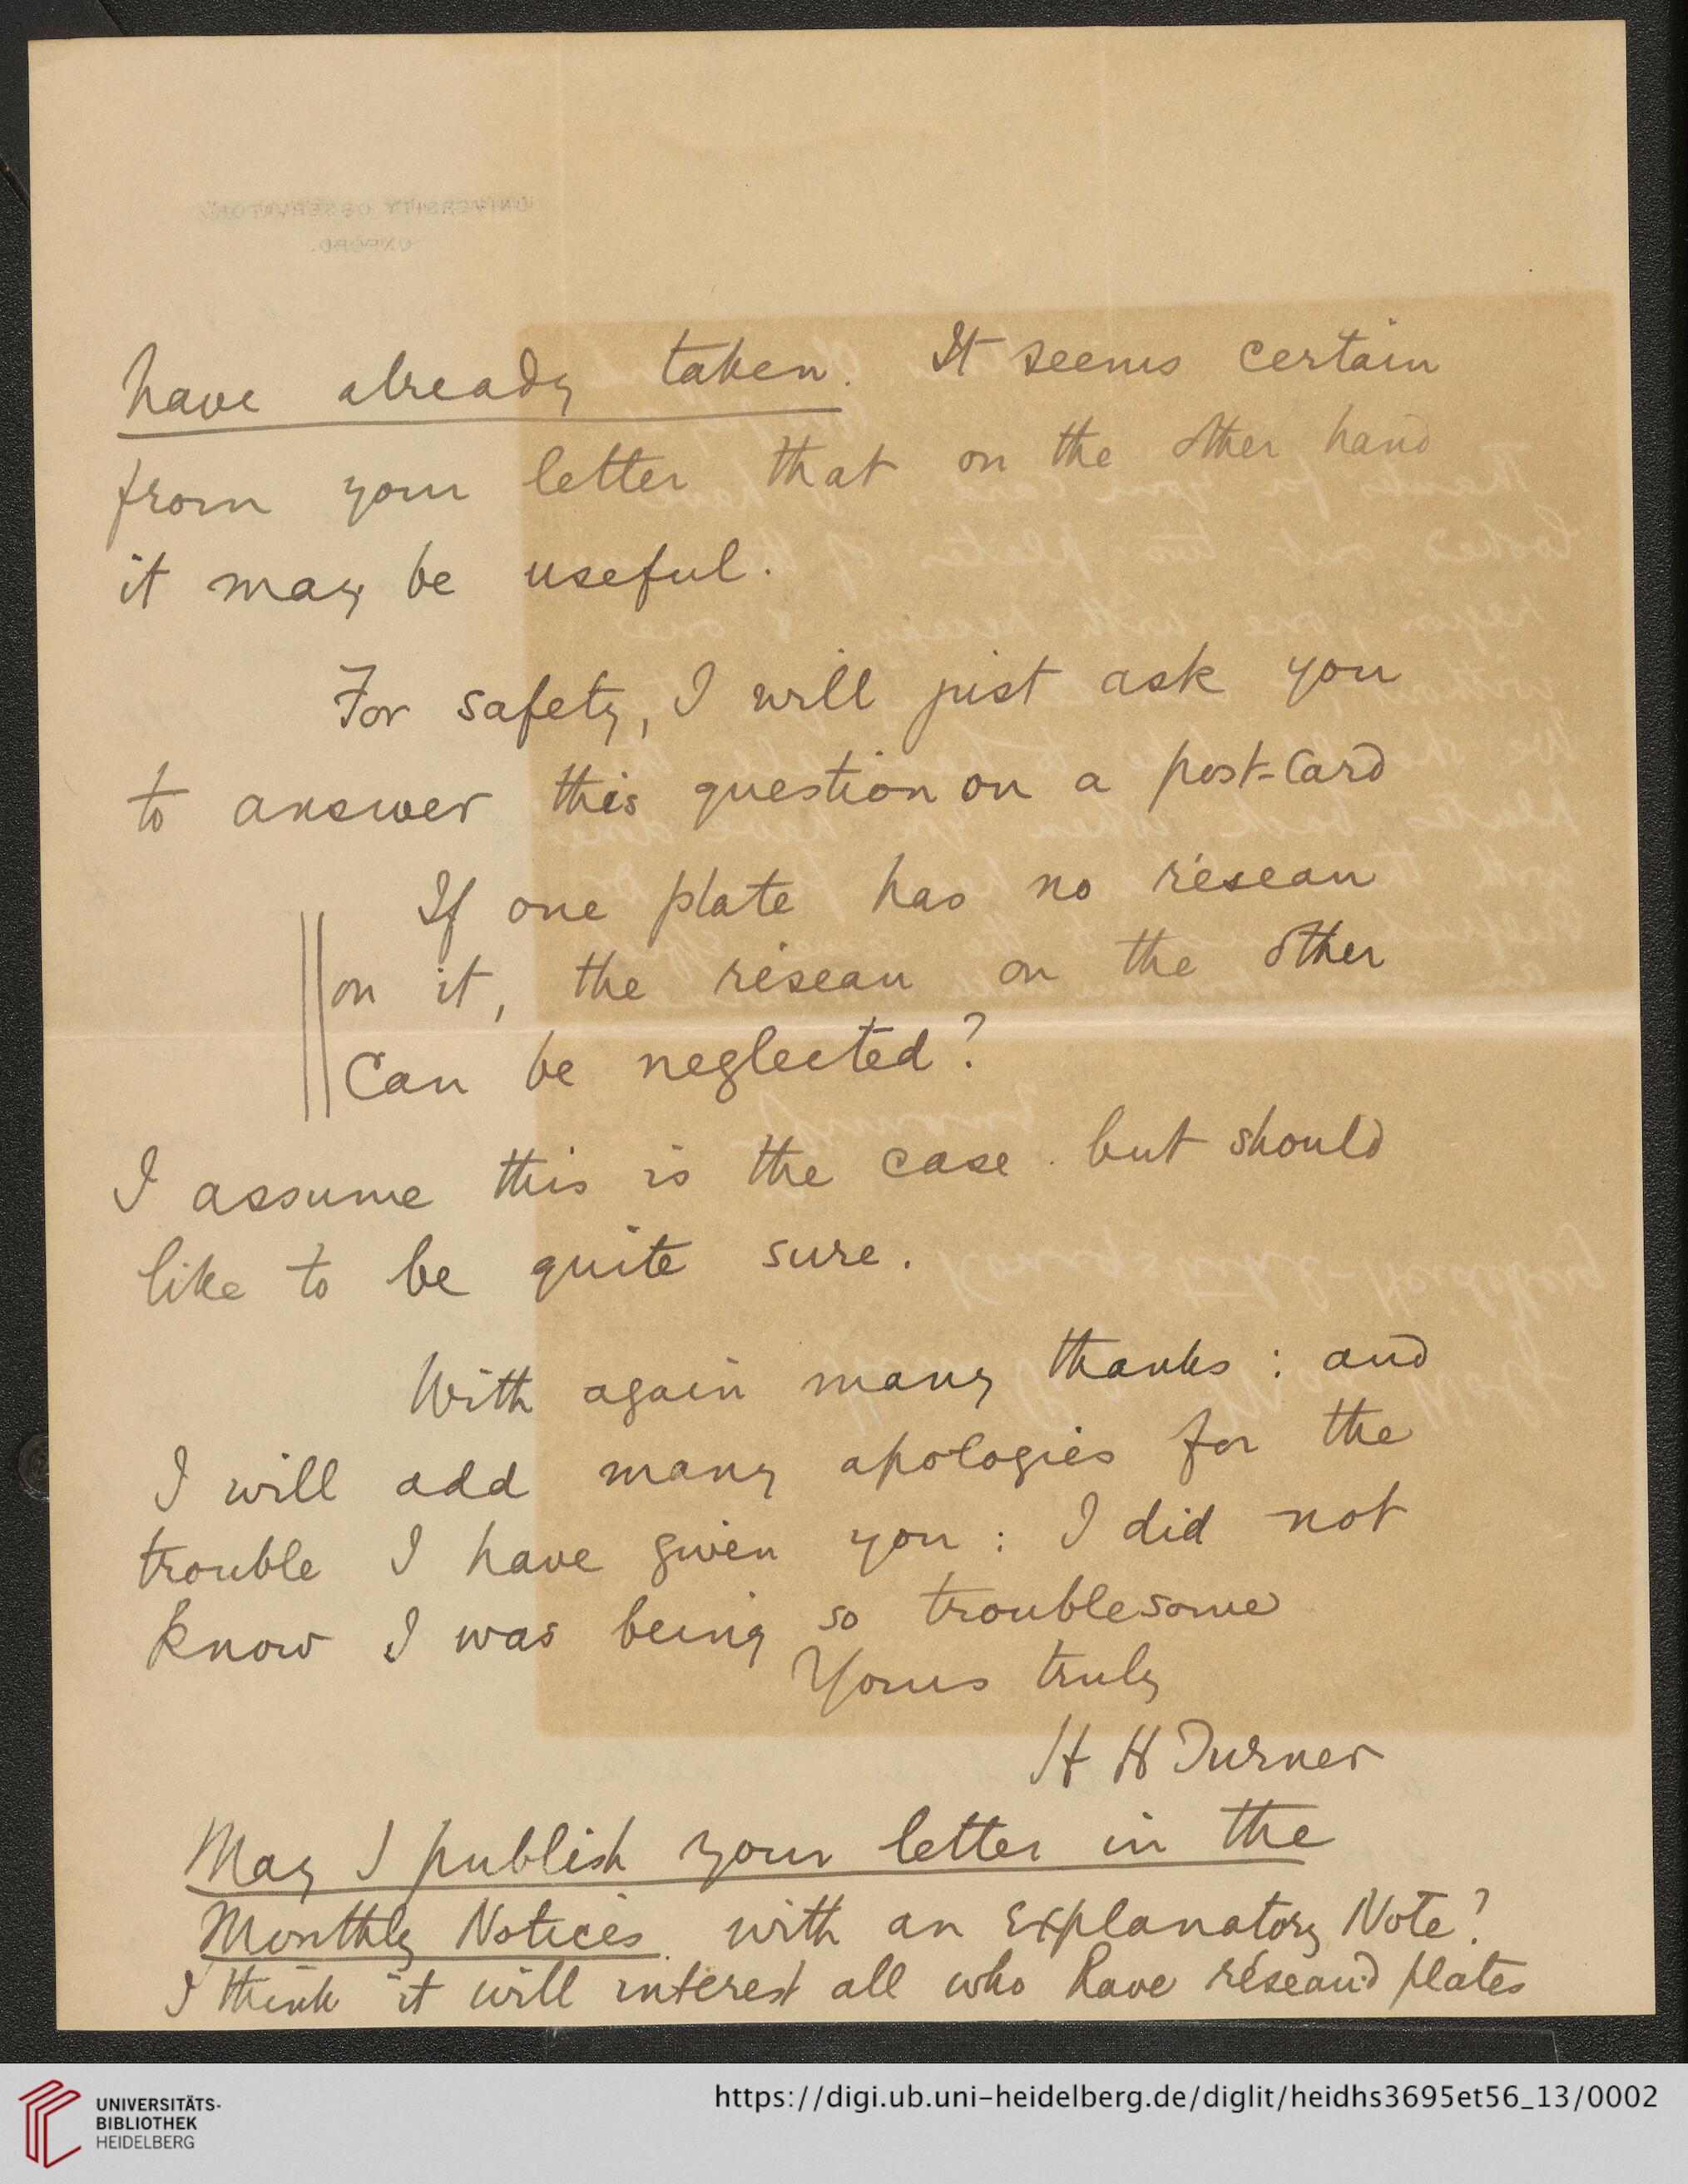 UNIVERSITY OBSERVATORY
OXFORD.
have already taken. It seems certain
from your letter that on the other hand
it may be useful.
For safety, I will just ask you
to answer this question on a post-card
If one plate has no réseau
on it, the réseau on the other
can be neglected?
I assume this is the case. but should
like to be quite sure.
With again many thanks: and
I will add many apologies for the
trouble I have given you: I did not
know I was being so troublesome
Yours truly
H H Turner
May I publish your letter in the
Monthly Notices, with an Explanatory Note?
I think it will interest all who have réseau'd plates
UNIVERSITÄTS-
BIBLIOTHEK
HEIDELBERG
https://digi.ub.uni-heidelberg.de/diglit/heidhs3695et56_13/0002